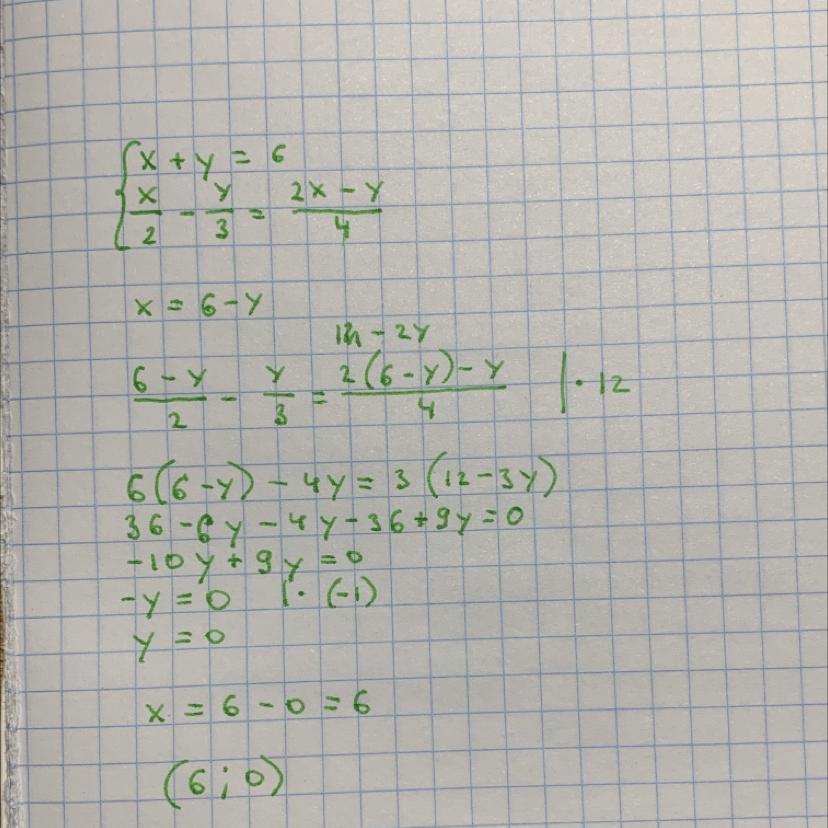 x + y = 6
x/2 - y/3 = (2x - y)/4
x = 6 - y
12 - 2y
(6 - y)/2 - y/3 = (2(6 - y) - y)/4 | · 12
6(6 - y) - 4y = 3(12 - 3y)
36 - 6y - 4y - 36 + 9y = 0
-10y + 9y = 0
-y = 0 | · (-1)
y = 0
x = 6 - 0 = 6
(6; 0)